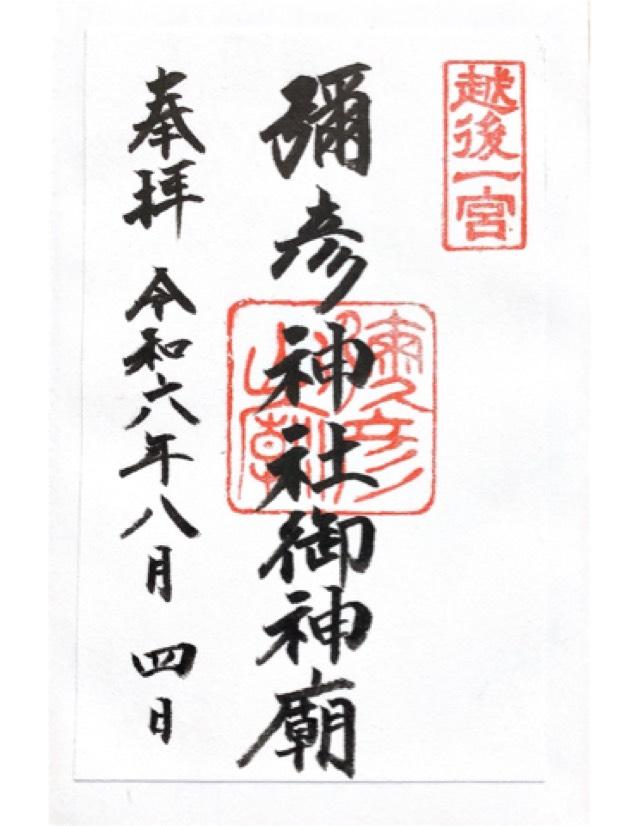 越後一宮
彌彦神社御神廟
奉拝 令和六年八月 四日